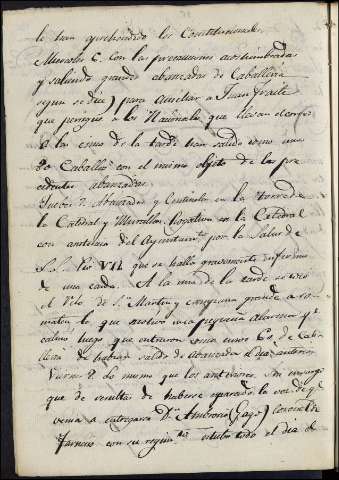 le han aprehendido los Constitucionales
Miercoles 6. Con las precauciones acostumbradas
y saliendo grandes abanzadas de Caballeria
segun se dice) para auxiliar a Juan
que persigue a los Nacionales que llevan el
A las cinco de la tarde han salido como unos
80 Caballos con el mismo objeto de las pre
cedentes abanzadas.
Jueves 7. Abanzadas y Centinelas en la torre de
la Catedral y Murallas. Rogativa en la Catedral
con asistencia del Ayuntamto. por la Salud de
S.S. Pio VII que se halla gravemente enfermo
de una caida. A la una de la tarde se
el Velo de S. Martin y empezaron a
maten lo que motivo una pequeña alarma y se
calmo luego que entraron unos cinco Cs. de Caba
lleria que habian salido de abanzada el dia anterior
Viernes 8. Lo mismo que los anteriores, sin embargo
que de resultas de haberse esparcido la voz de qe
venia a entregarse Dn. Ambrosio (Gago) Coronel de
Farnesio con su regimto. estubo todo el dia de